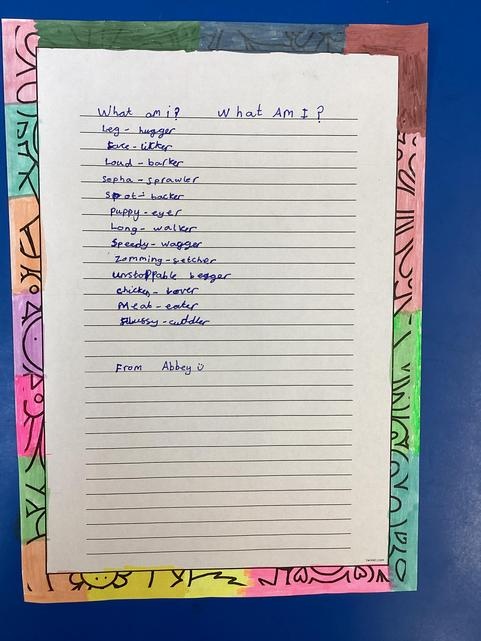 What am i? What Am I?
Leg - hugger
Face - licker
Loud - barker
Sopha - sprawler
Spot - backer
Puppy - eyer
Long - walker
Speedy - wagger
Zomming - fetcher
unstoppable begger
chicken - lover
Meat - eater
cuddler
From Abbey
twinkl.com